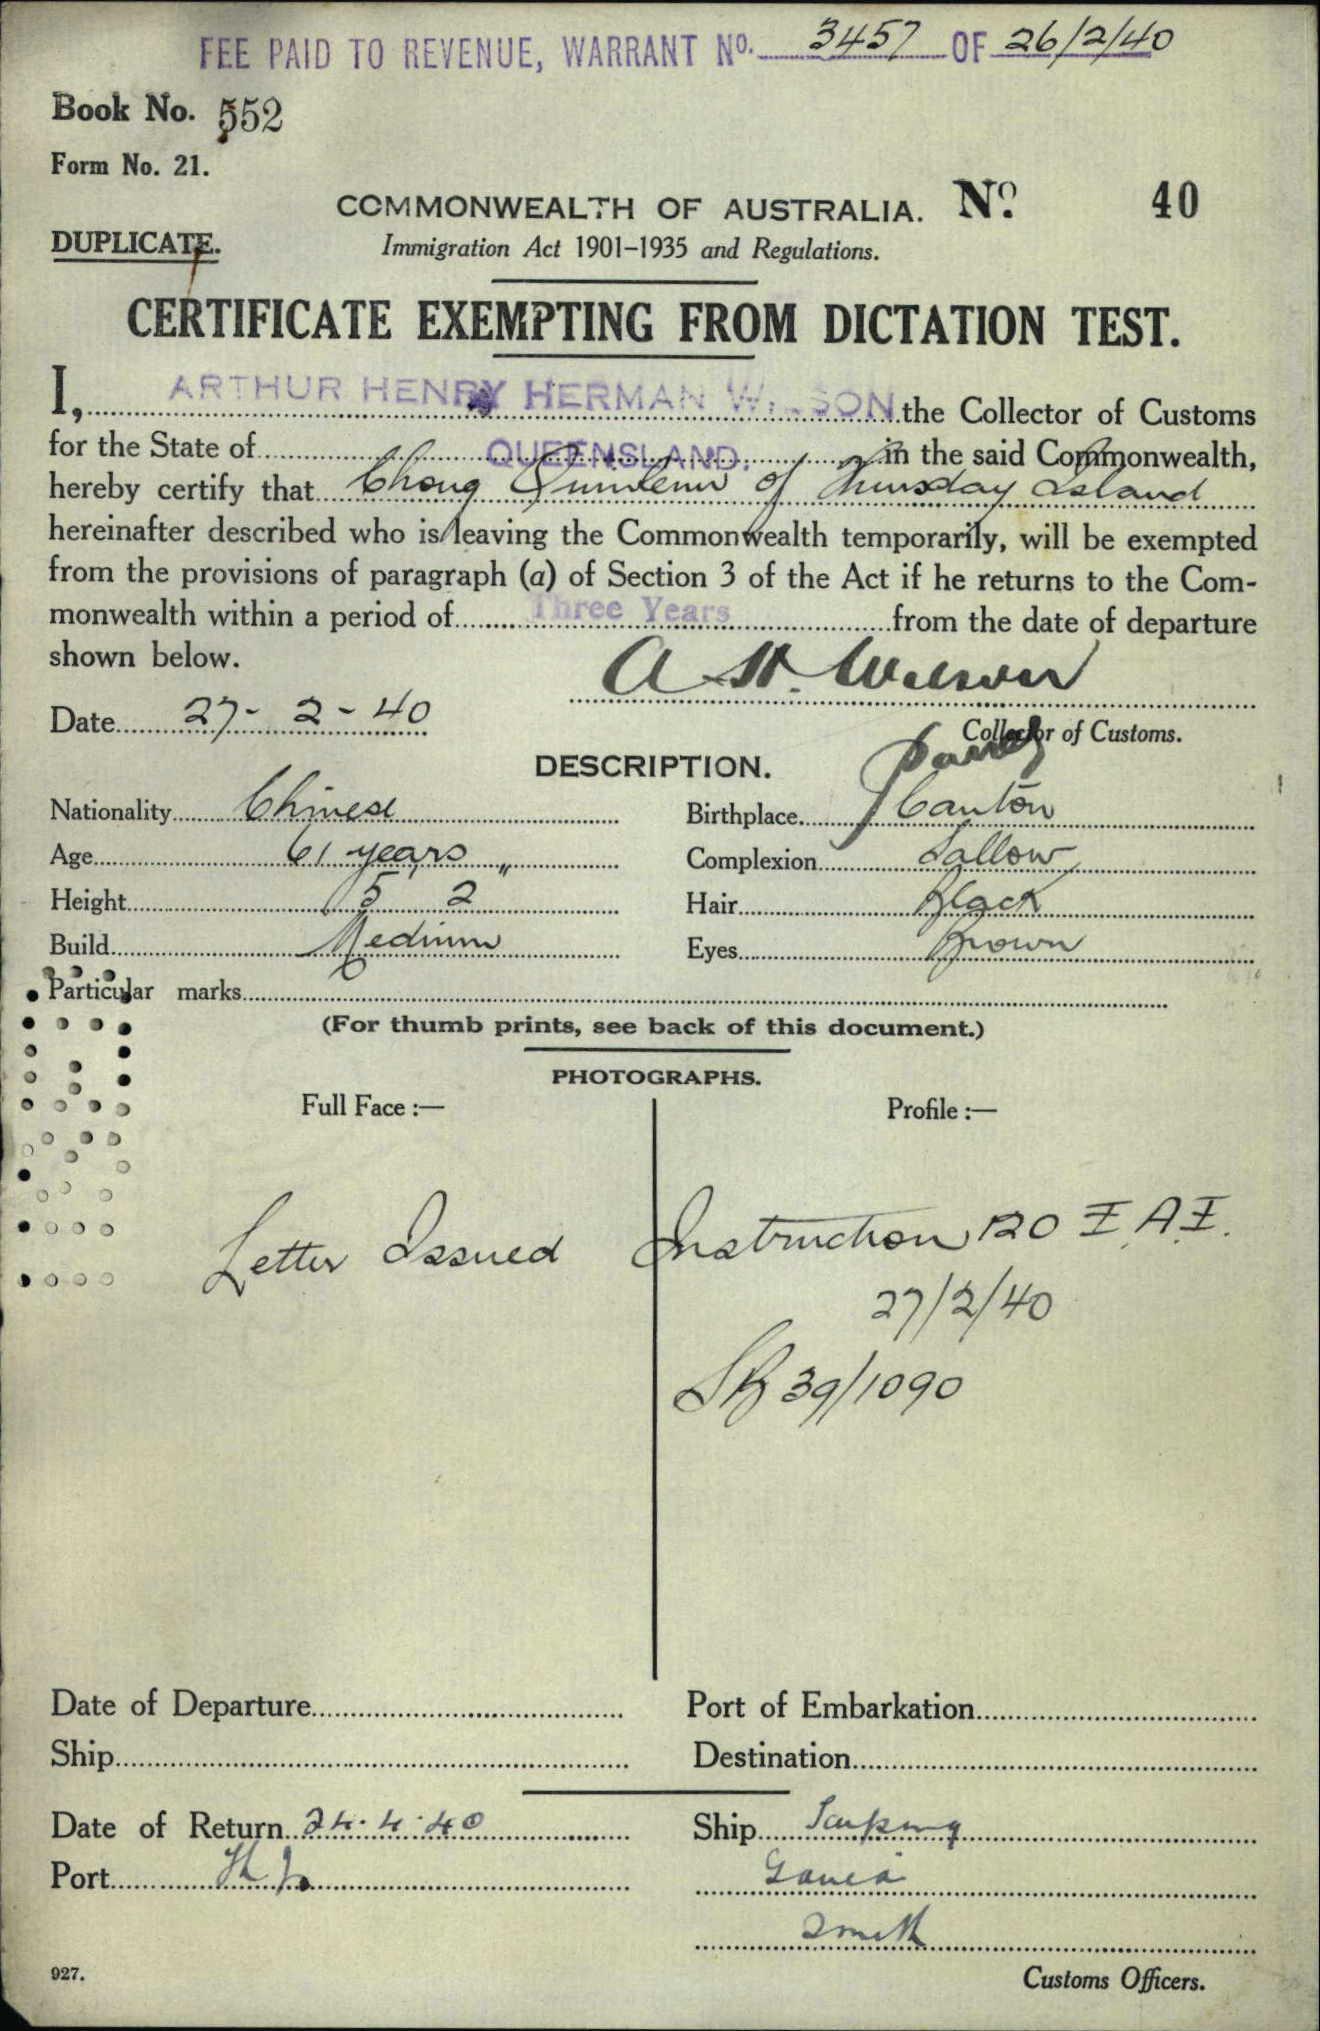 FEE PAID TO REVENUE, WARRANT No. 3457 OF 26/2/40
Book No. 552
Form No. 21.
COMMONWEALTH OF AUSTRALIA. No. 40
DUPLICATE.
Immigration Act 1901-1935 and Regulations.
CERTIFICATE EXEMPTING FROM DICTATION TEST.
I, ARTHUR HENRY HERMAN WILSON the Collector of Customs
for the State of QUEENSLAND, in the said Commonwealth,
hereby certify that Chong of Thursday Island
hereinafter described who is leaving the Commonwealth temporarily, will be exempted
from the provisions of paragraph (a) of Section 3 of the Act if he returns to the Com-
monwealth within a period of Three Years from the date of departure
shown below.
A. H. Wilson
Date 27-2-40
Collector of Customs.
DESCRIPTION.
Nationality Chinese
Birthplace Canton
Age 61 years
Complexion Sallow
Height 5' 2"
Hair Black
Build Medium
Eyes Brown
Particular marks
(For thumb prints, see back of this document.)
PHOTOGRAPHS.
Full Face :—
Profile :—
Letter Issued Instruction 120 I.A.I.
27/2/40
39/1090
Date of Departure
Port of Embarkation
Ship
Destination
Date of Return 24.4.40
Ship Taiping
Port Th I.
Smith
927.
Customs Officers.